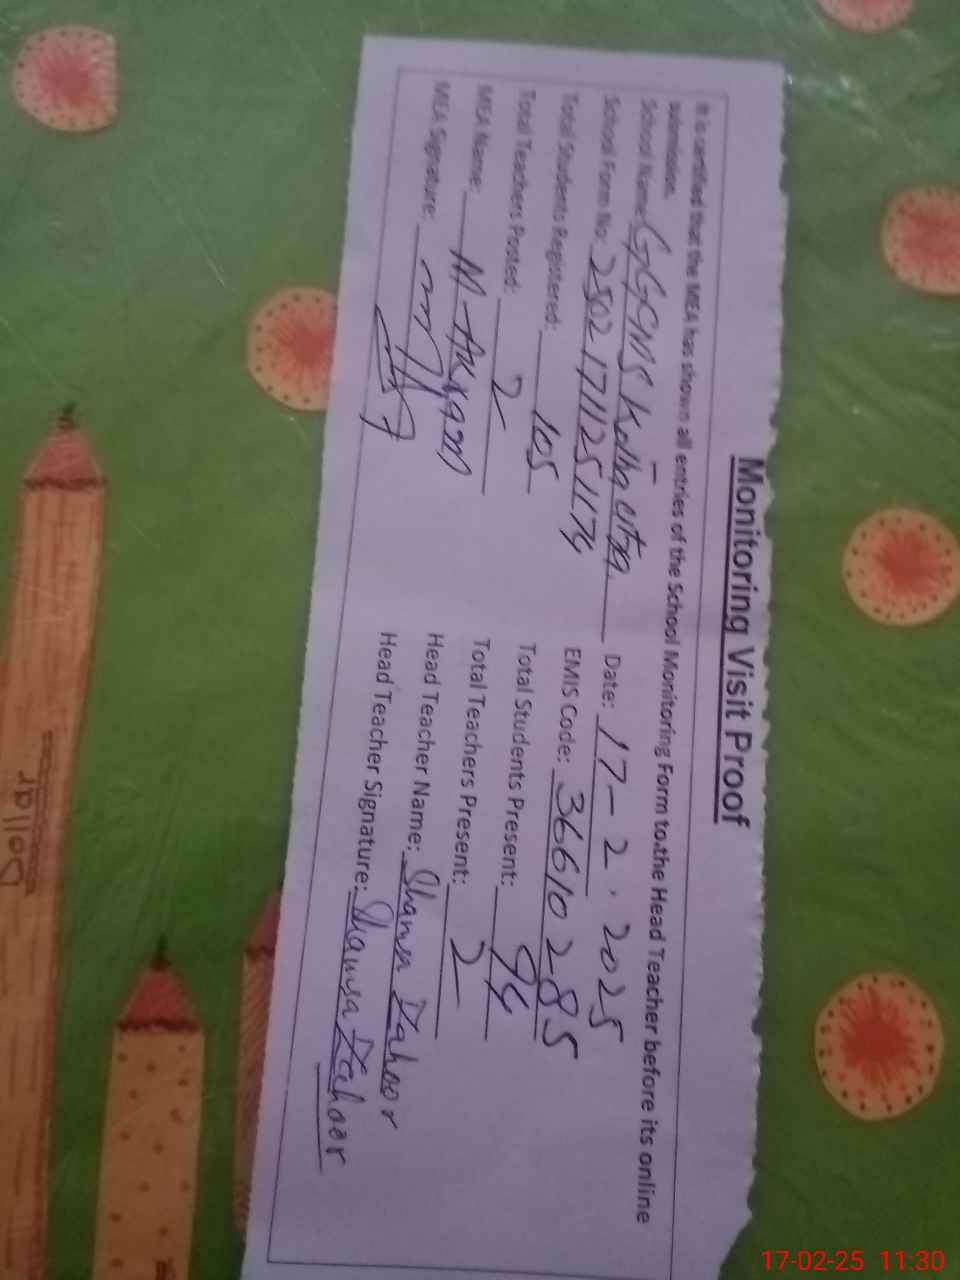 Monitoring Visit Proof
It is certified that the MEA has shown all entries of the School Monitoring Form to the Head Teacher before its online
submission.
School Name: GGCMS Kotha
Date: 17-2-2025
School Form No: 25021711251174
EMIS Code: 36610285
Total Students Registered: 105
Total Students Present: 94
Total Teachers Posted: 2
Total Teachers Present: 2
MEA Name: M-
Head Teacher Name: Shamsa Zahoor
MEA Signature:
Head Teacher Signature: Shamsa Zahoor
Dollar
17-02-25 11:30